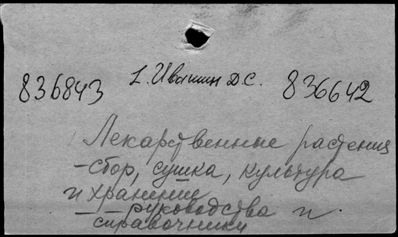 1. Ивашин Д.С.
836843 836642
Лекарственные растения
- сбор, сушка, культура
и хранение
- руководства и
справочники